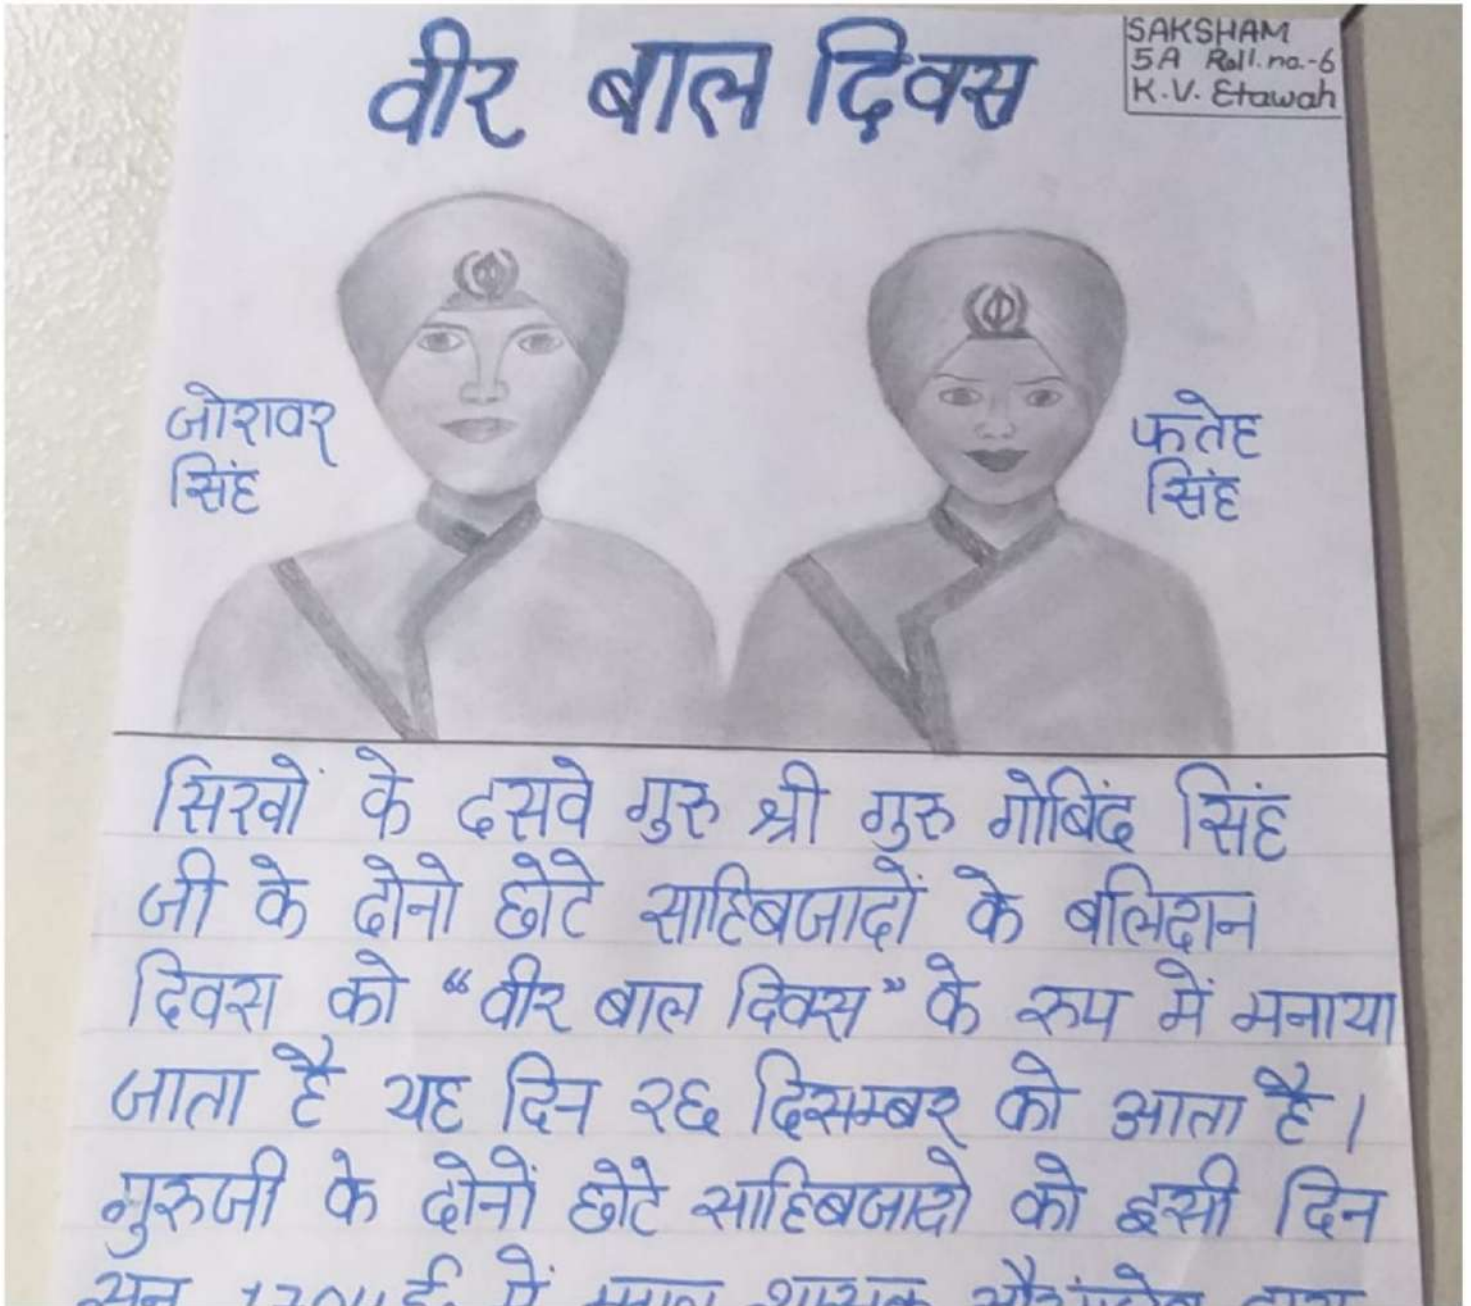 वीर बाल दिवस
SAKSHAM
5A Roll.no.-6
K.V. Etawah
जोरावर
सिंह
फतेह
सिंह
सिखों के दसवे गुरु श्री गुरु गोबिंद सिंह
जी के दोनो छोटे साहिबजादों के बलिदान
दिवस को “वीर बाल दिवस” के रुप में मनाया
जाता है यह दिन २६ दिसम्बर को आता है।
गुरुजी के दोनों छोटे साहिबजादो को इसी दिन